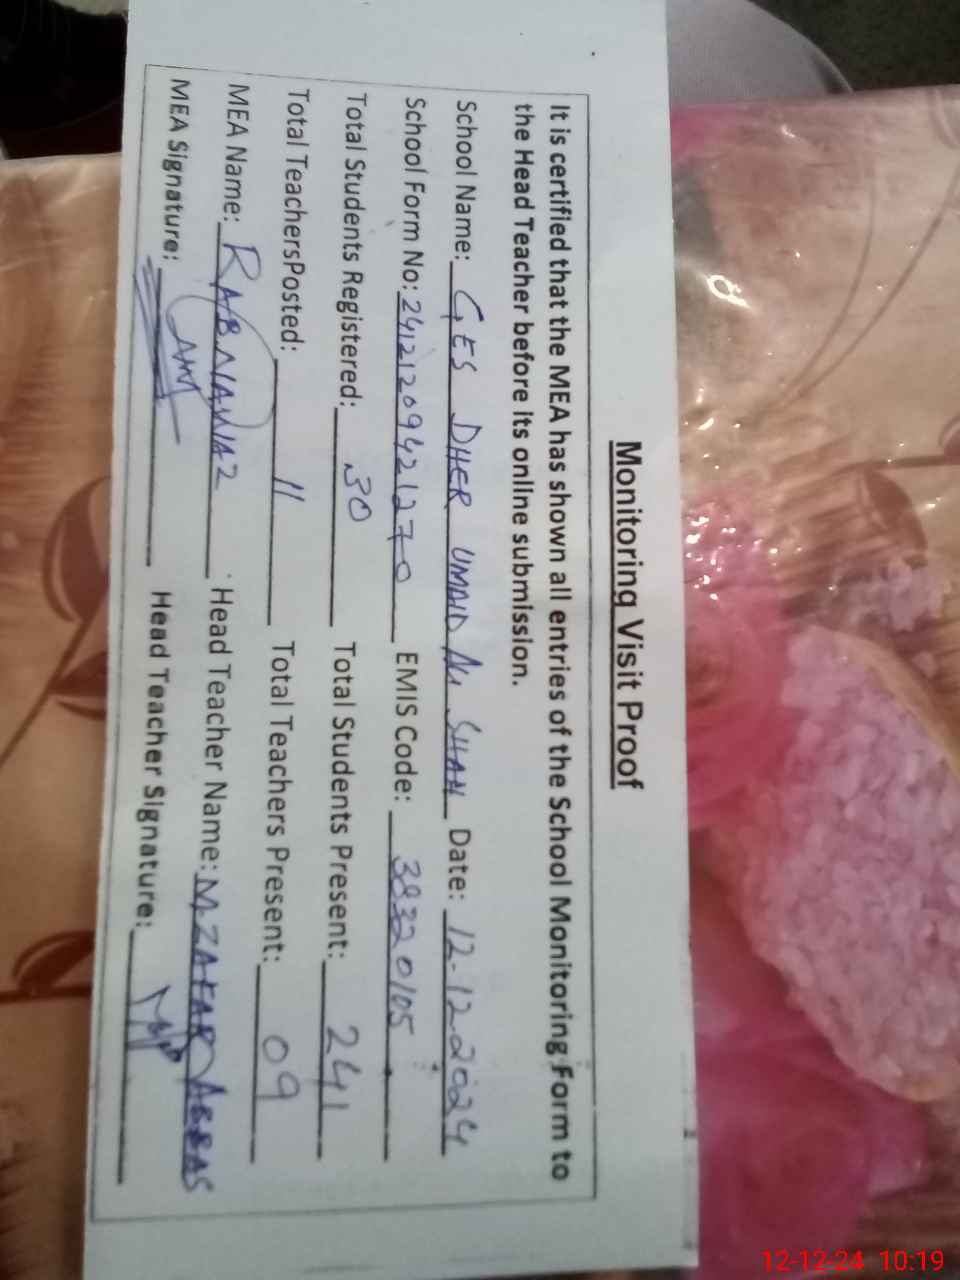 Monitoring Visit Proof
It is certified that the MEA has shown all entries of the School Monitoring Form to
the Head Teacher before its online submission.
School Name: GES DHER UMAID ALI SHAH Date: 12-12-2024
School Form No: 24121209421270 EMIS Code: 38320105
Total Students Registered: 30 Total Students Present: 241
Total TeachersPosted: 11 Total Teachers Present: 09
MEA Name: RABNAWAZ Head Teacher Name: M ZAFAR ABBAS
MEA Signature: Head Teacher Signature:
12-12-24 10:19